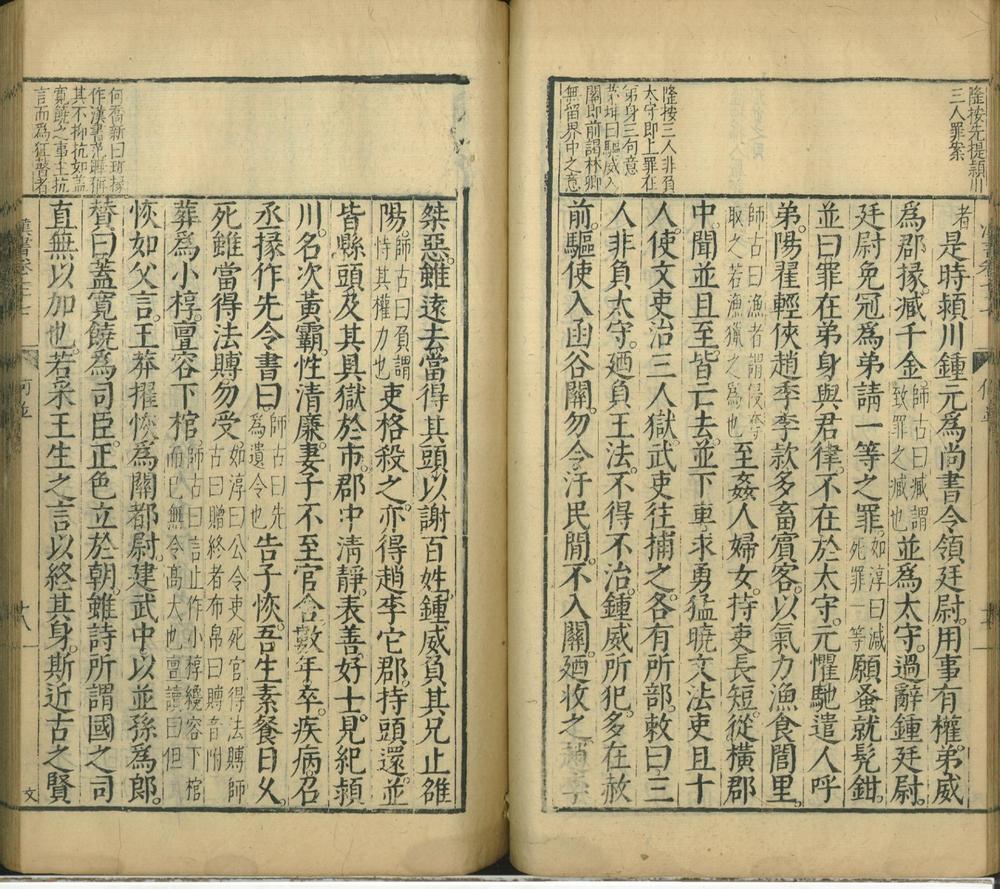 隆按先提潁川
三人罪案
隆按三人非負
太守即上罪在
弟身三句意
茅坤曰驅威入
關即前謁林卿
無留界中之意
者是時潁川鍾元為尚書令領廷尉用事有權弟威
為郡掾臧千金
師古曰臧謂
致罪之臧也
並為太守過辭鍾廷尉
廷尉免冠為弟請一等之罪
如淳曰減
死罪一等
願蚤就髡鉗
並曰罪在弟身與君律不在於太守元懼馳遣人呼
弟陽翟輕俠趙季李款多畜賓客以氣力漁食閭里
師古曰漁者謂侵奪
取之若漁獵之為也
至姦人婦女持吏長短從橫郡
中聞並且至皆亡去並下車求勇猛曉文法吏且十
人使文吏治三人獄武吏往捕之各有所部敕曰三
人非負太守廼負王法不得不治鍾威所犯多在赦
前驅使入函谷關勿令汙民間不入關廼收之趙李
何喬新曰班掾
作漢書范曄稱
其不抑抗如蓋
寬饒之事主抗
言而為狂瞽者
桀惡雖遠去當得其頭以謝百姓鍾威負其兄止雒
陽
師古曰負謂
恃其權力也
吏格殺之亦得趙李它郡持頭還並
皆縣頭及其具獄於市郡中清靜表善好士見紀潁
川名次黃霸性清廉妻子不至官舍數年卒疾病召
丞掾作先令書曰
師古曰先
為遺令也
告子恢吾生素餐日久
死雖當得法賻勿受
如淳曰公令吏死官得法賻師
古曰贈終者布帛曰賻音附
葬為小椁亶容下棺
師古曰言止作小椁纔容下棺
而已無令高大也亶讀曰但
恢如父言王莽擢恢為關都尉建武中以並孫為郎
贊曰蓋寬饒為司臣正色立於朝雖詩所謂國之司
直無以加也若采王生之言以終其身斯近古之賢
何並
廿八
文